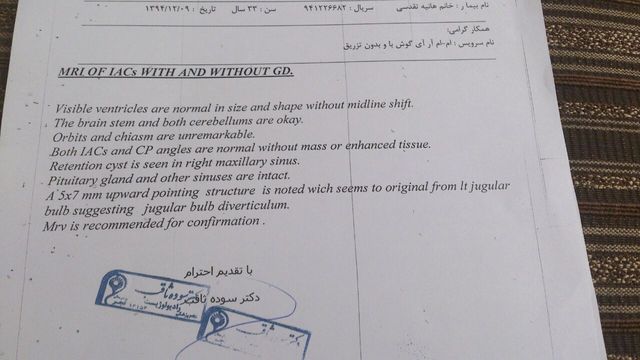 نام بیمار : خانم هانیه تقدسی سریال : ۹۴۱۲۲۶۶۸۲ سن : ۳۳ سال تاریخ : ۱۳۹۴/۱۲/۰۹
همکار گرامی:
نام سرویس : ام.ام آر آی گوش با و بدون تزریق
MRI OF IACs WITH AND WITHOUT GD.
Visible ventricles are normal in size and shape without midline shift.
The brain stem and both cerebellums are okay.
Orbits and chiasm are unremarkable.
Both IACs and CP angles are normal without mass or enhanced tissue.
Retention cyst is seen in right maxillary sinus.
Pituitary gland and other sinuses are intact.
A 5x7 mm upward pointing structure is noted wich seems to original from lt jugular
bulb suggesting jugular bulb diverticulum.
Mrv is recommended for confirmation .
با تقدیم احترام
دکتر سوده ثاقب